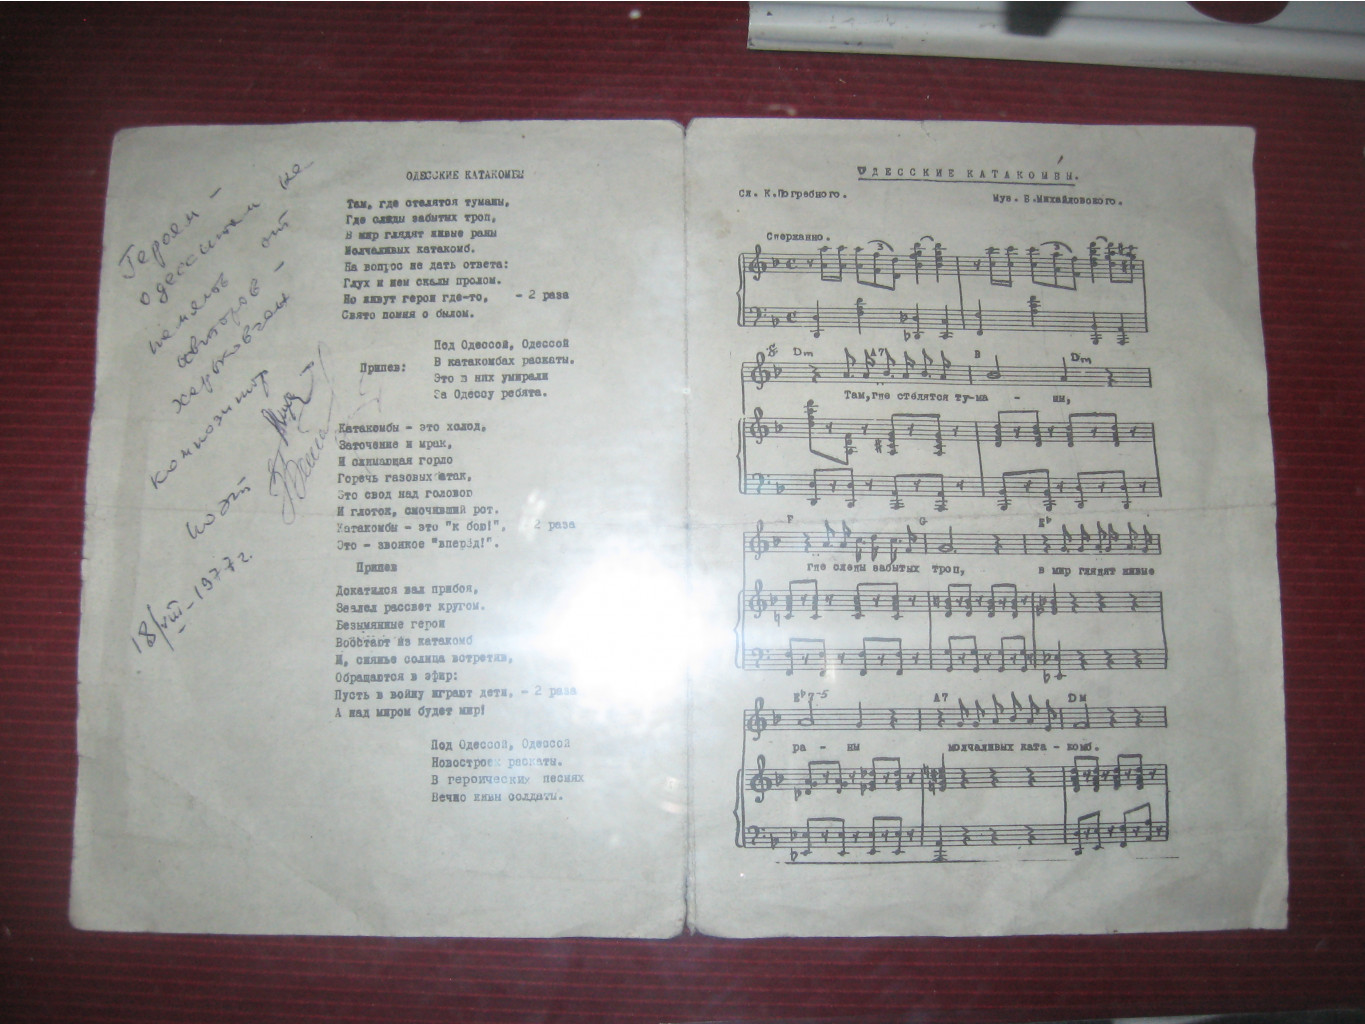 Героям –
одесситам на
память от
авторов –
харьковчан
композитор
поэт
18/VIII – 1977 г.
ОДЕССКИЕ КАТАКОМБЫ
Там, где стелятся туманы,
Где следы забытых троп,
В мир глядят живые раны
Молчаливых катакомб.
На вопрос не дать ответа:
Глух и нем скалы пролом.
Но живут герои где-то, - 2 раза
Свято помня о былом.
Под Одессой, Одессой
Припев: В катакомбах раскаты.
Это в них умирали
За Одессу ребята.
Катакомбы - это холод,
Заточение и мрак,
И сжимающая горло
Горечь газовых атак,
Это свод над головой
И глоток, смочивший рот.
Катакомбы - это "к бою!", 2 раза
Это - звонкое "вперёд!".
Припев
Докатился вал прибоя,
Заалел рассвет кругом.
Безымянные герои
Восстают из катакомб
И, сиянье солнца встретив,
Обращаются в эфир:
Пусть в войну играют дети, - 2 раза
А над миром будет мир!
Под Одессой, Одессой
Новостроек раскаты.
В героических песнях
Вечно живы солдаты.
ОДЕССКИЕ КАТАКОМБЫ.
Сл. К.Погребного. Муз. В.Михайловского.
Сдержанно.
Dm A7 B Dm
Там,где стелятся ту-ма - ны,
F G Eb
Где следы забытых троп, в мир глядят живые
Eb7-5 A7 DM
ра - ны молчаливых ката - комб.